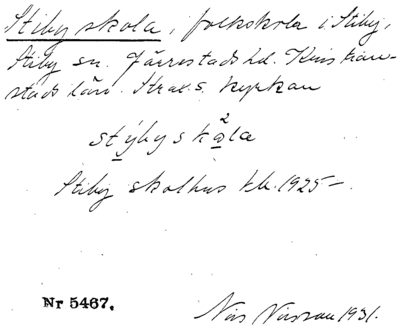 Stiby skola, folkskola i Stiby,
Stiby sn. Järrestads hd. Kristian-
stads län. Strax s. kyrkan
stýbyskåla
Stiby skolhus kbl. 1925–.
Nr 5467.
Nils 1931.